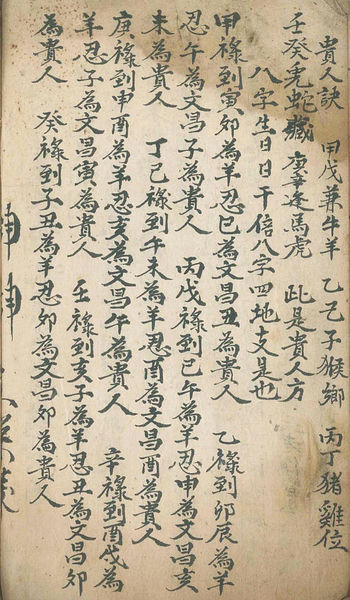 貴人訣　甲戊兼牛羊　乙己子猴鄉　丙丁猪雞位
壬癸兔蛇藏　庚辛逢馬虎　此是貴人方
八字生日日干倍八字四地支是也
甲祿到寅卯為羊忍巳為文昌丑為貴人　乙祿到卯辰為羊
忍午為文昌子為貴人　丙戊祿到巳午為羊忍申為文昌亥
未為貴人　丁己祿到午未為羊忍酉為文昌酉為貴人
庚祿到申酉為羊忍亥為文昌午為貴人　辛祿到酉戌為
羊忍子為文昌寅為貴人　壬祿到亥子為羊忍丑為文昌卯
為貴人　癸祿到子丑為羊忍卯為文昌卯為貴人